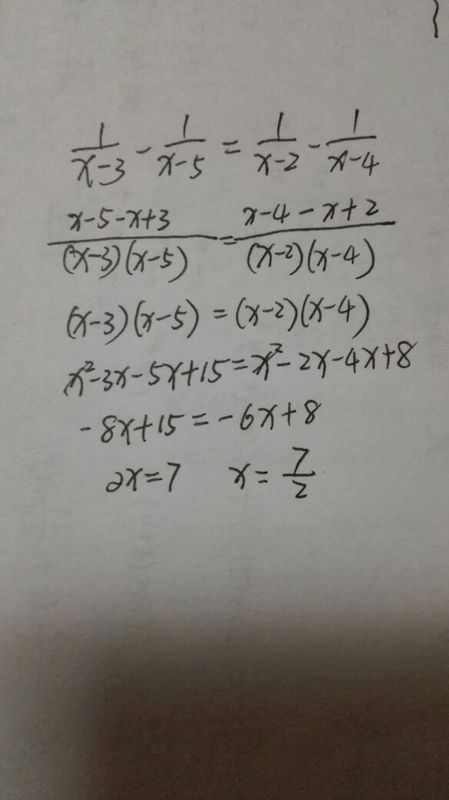 1/(x-3) - 1/(x-5) = 1/(x-2) - 1/(x-4)
(x-5-x+3)/((x-3)(x-5)) = (x-4-x+2)/((x-2)(x-4))
(x-3)(x-5) = (x-2)(x-4)
x²-3x-5x+15=x²-2x-4x+8
-8x+15=-6x+8
2x=7 x=7/2